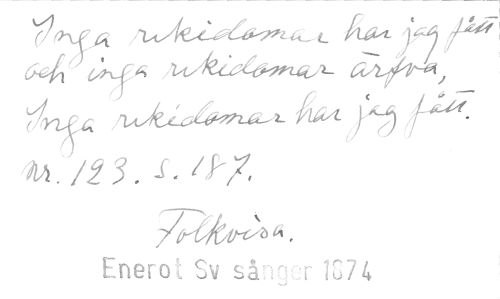 Inga rikidomar har jag fått
och inga rikidomar ärfva,
Inga rikidomar har jag fått.
nr. 123. s. 187.
Folkvisa.
Enerot Sv sånger 1874